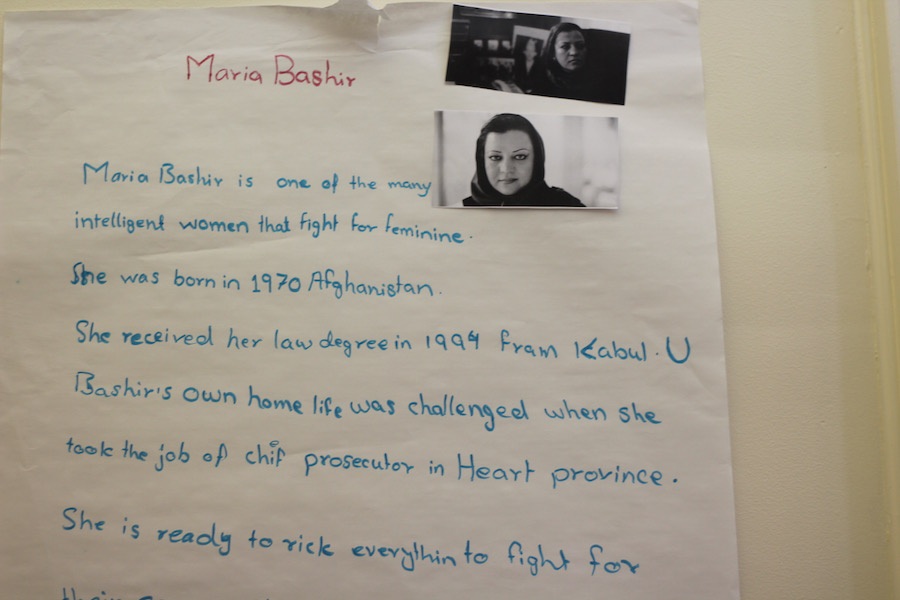 Maria Bashir
Maria Bashir is one of the many
intelligent women that fight for feminine.
She was born in 1970 Afghanistan.
She received her law degree in 1994 fram Kabul.U
Bashir's own home life was challenged when she
took the job of chif prosecutor in Heart province.
She is ready to rick everythin to fight for
their